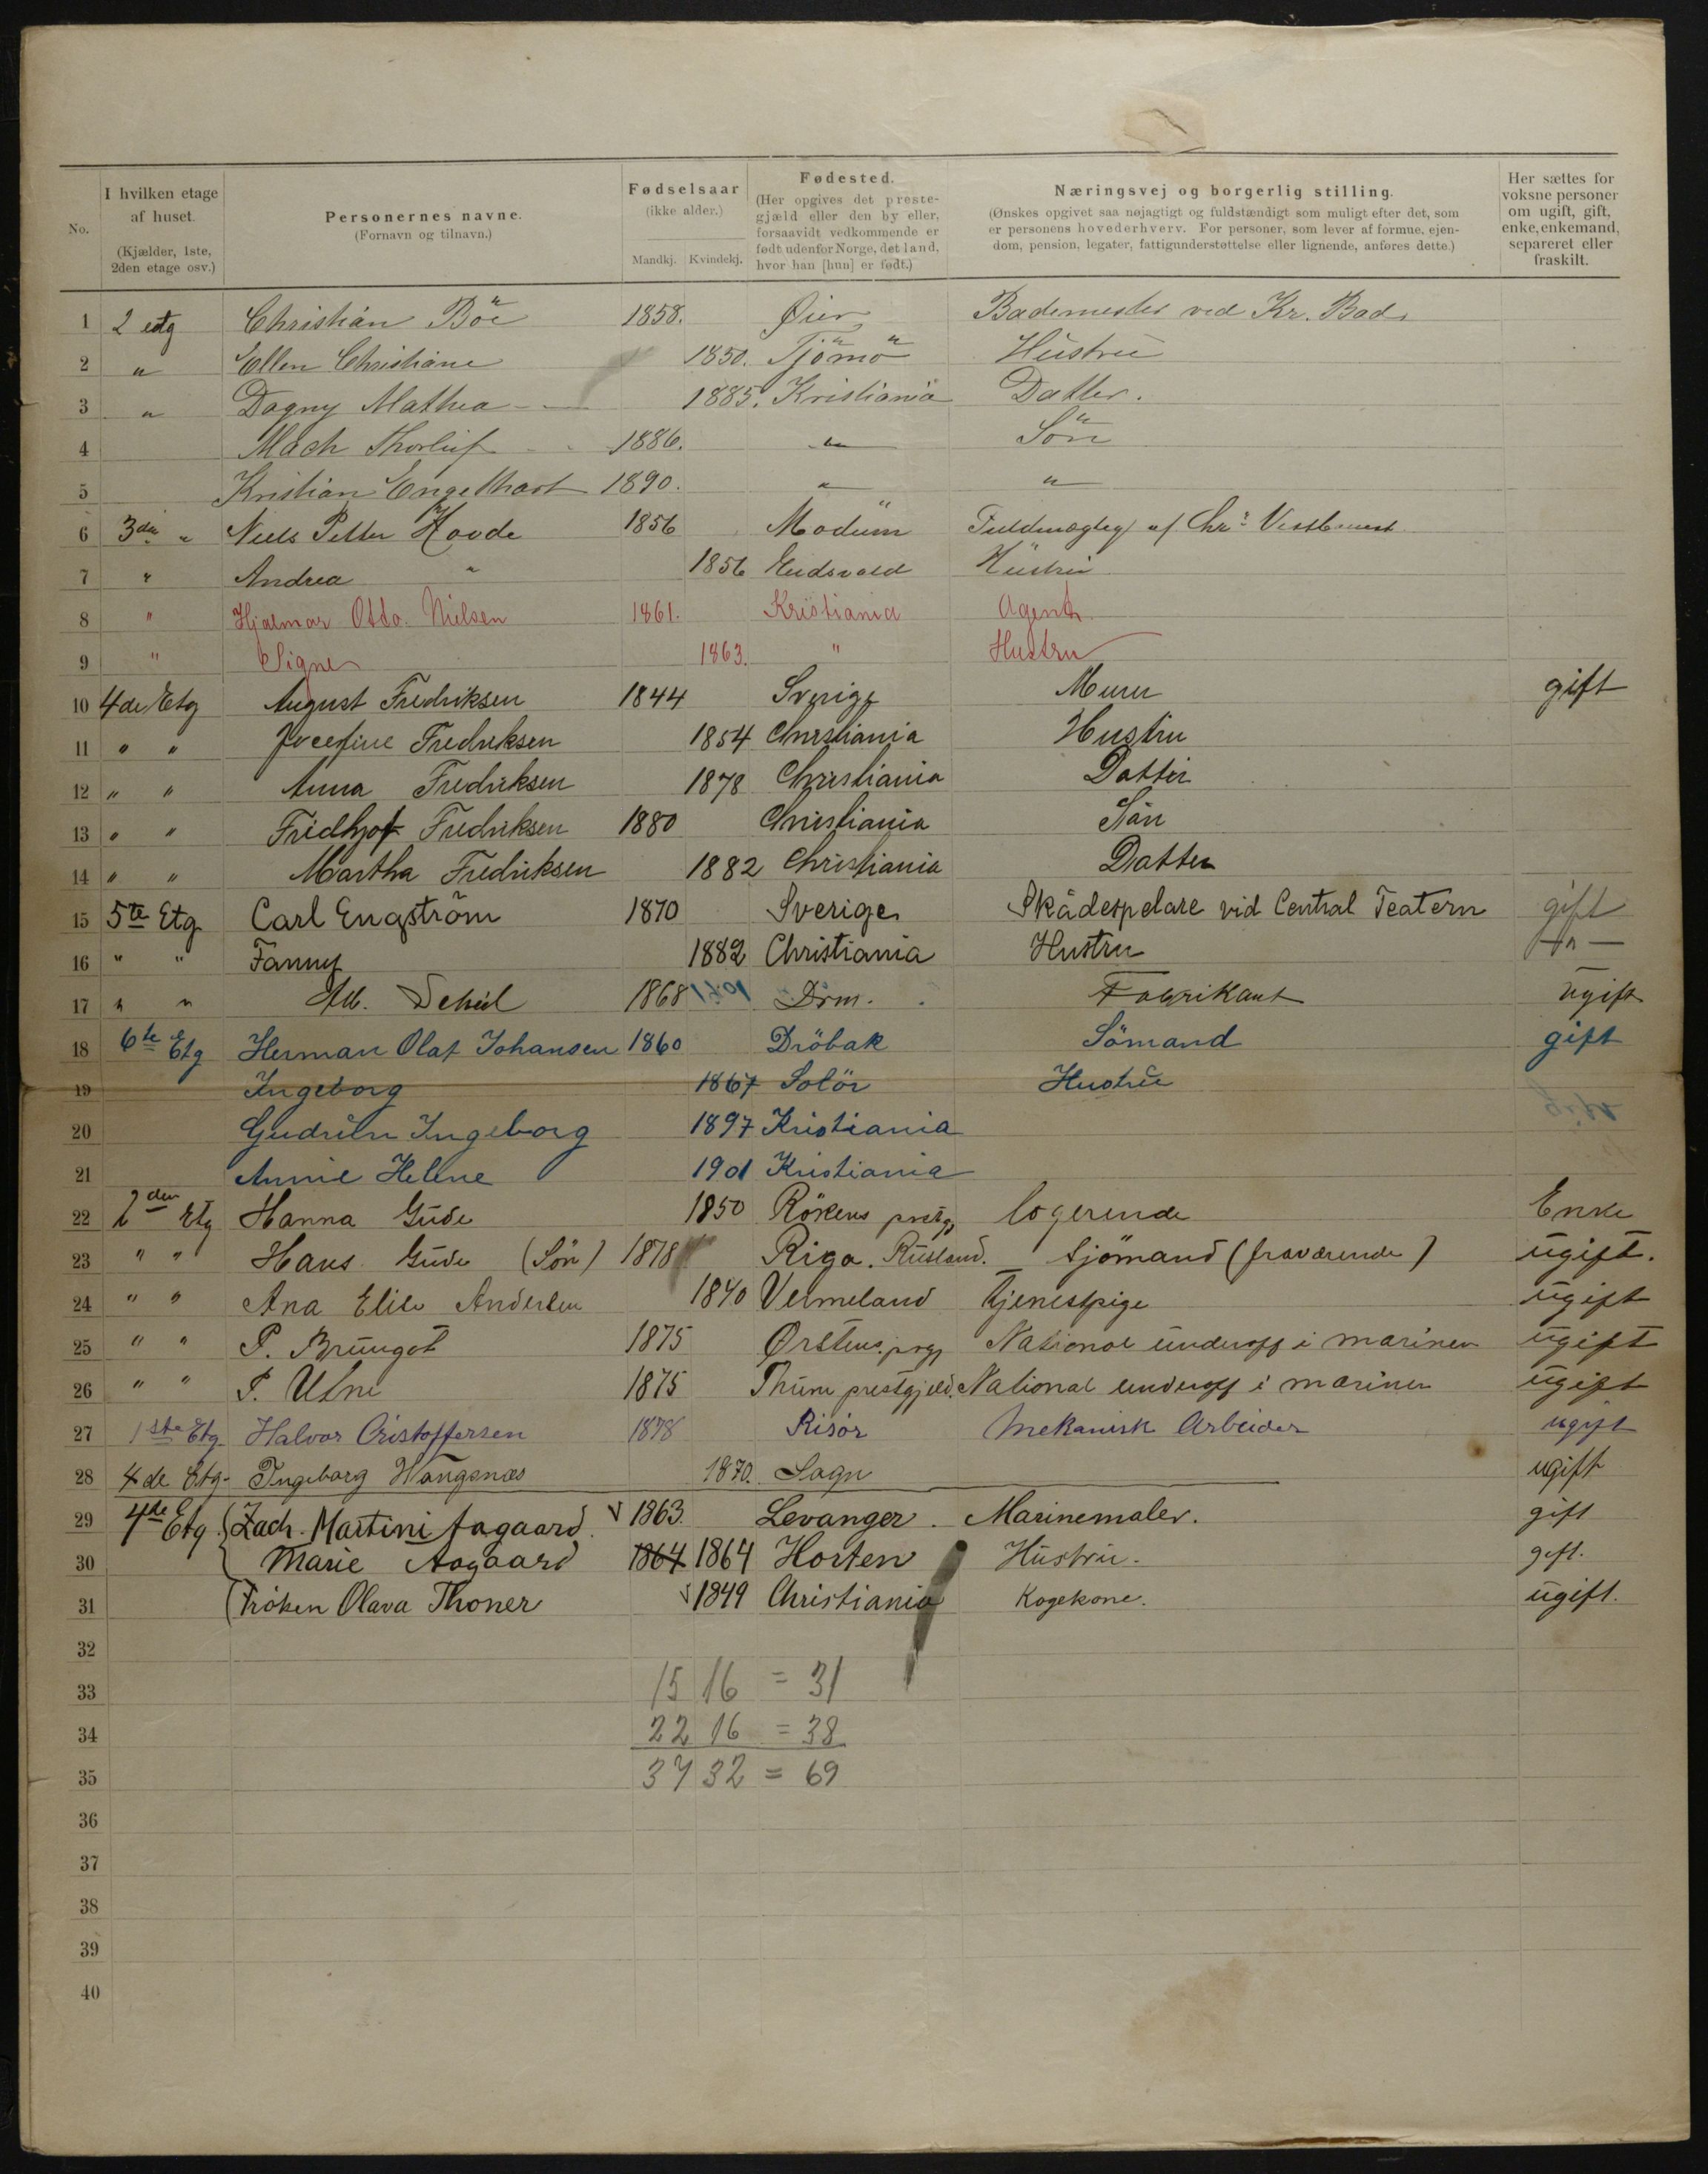 No.
I hvilken etage af huset. (Kjælder, 1ste, 2den etage osv.)
Personernes navne. (Fornavn og tilnavn.)
Fødselsaar (ikke alder.) Mandkj. Kvindekj.
Fødested. (Her opgives det prestegjæld eller den by eller, forsaavidt vedkommende er født udenfor Norge, det land, hvor han [hun] er født.)
Næringsvej og borgerlig stilling. (Ønskes opgivet saa nøjagtigt og fuldstændigt som muligt efter det, som er personens hovederhverv. For personer, som lever af formue, ejendom, pension, legater, fattigunderstøttelse eller lignende, anføres dette.)
Her sættes for voksne personer om ugift, gift, enke, enkemand, separeret eller fraskilt.
1 2 etg Christian Böe 1858. Øier Bademester ved Kr. Bad
2 " Ellen Christiane 1850. Tjömö Hustru
3 " Dagny Mathea 1885. Kristiania Datter.
4 Mach Thorleif 1886. " Sön
5 Kristian Engelhart 1890. " "
6 3die " Niels Petter Hovde 1856 Modum Fuldmægtig
7 " Andrea " 1856 Eidsvold Hustru
8 " Hjalmar Otto Nielsen 1861. Kristiania Agent
9 " Signe 1863. " Hustru
10 4de Etg August Fredriksen 1844 Sverige Murer gift
11 " " Josefine Fredriksen 1854 Christiania Hustru
12 " " Anna Fredriksen 1878 Christiania Datter
13 " " Fridhjof Fredriksen 1880 Christiania Sön
14 " " Martha Fredriksen 1882 Christiania Datter
15 5te Etg Carl Engström 1870 Sverige Skådespelare vid Central Teatern gift
16 " " Fanny 1882 Christiania Hustru —"—
17 " " 1868 Drm. Fabrikant ugift
18 6te Etg Herman Olaf Johansen 1860 Dröbak Sömand gift
19 Ingeborg 1867 Solör Hustru
20 Gudrun Ingeborg 1897 Kristiania
21 Annie Helene 1901 Kristiania
22 2den Etg Hanna Gude 1850 Rökens prstgj logerende Enke
23 " " Hans Gude (Sön) 1878 Riga. Rusland. Sjömand (fraværende) ugift.
24 " " Ana Elise Andersen 1840 Vermeland Tjenestpige ugift
25 " " P. Brungot 1875 Ørstens. prgj National underoff i marinen ugift
26 " " P. Utne 1875 prestgjeld. National underoff i marinen ugift
27 1ste Etg. Halvor Cristoffersen 1878 Risör Mekanisk Arbeider ugift
28 4de Etg. Ingeborg Hangsnæs 1870. Sogn ugift
29 4de Etg. Zach. Martini Aagaard. 1863. Levanger. Marinemaler. gift
30 Marie Aagaard 1864 1864 Horten Hustru. gift.
31 Fröken Olava Thoner 1849 Christiania Kogekone. ugift.
32
33 15 16 = 31
34 22 16 = 38
35 37 32 = 69
36
37
38
39
40